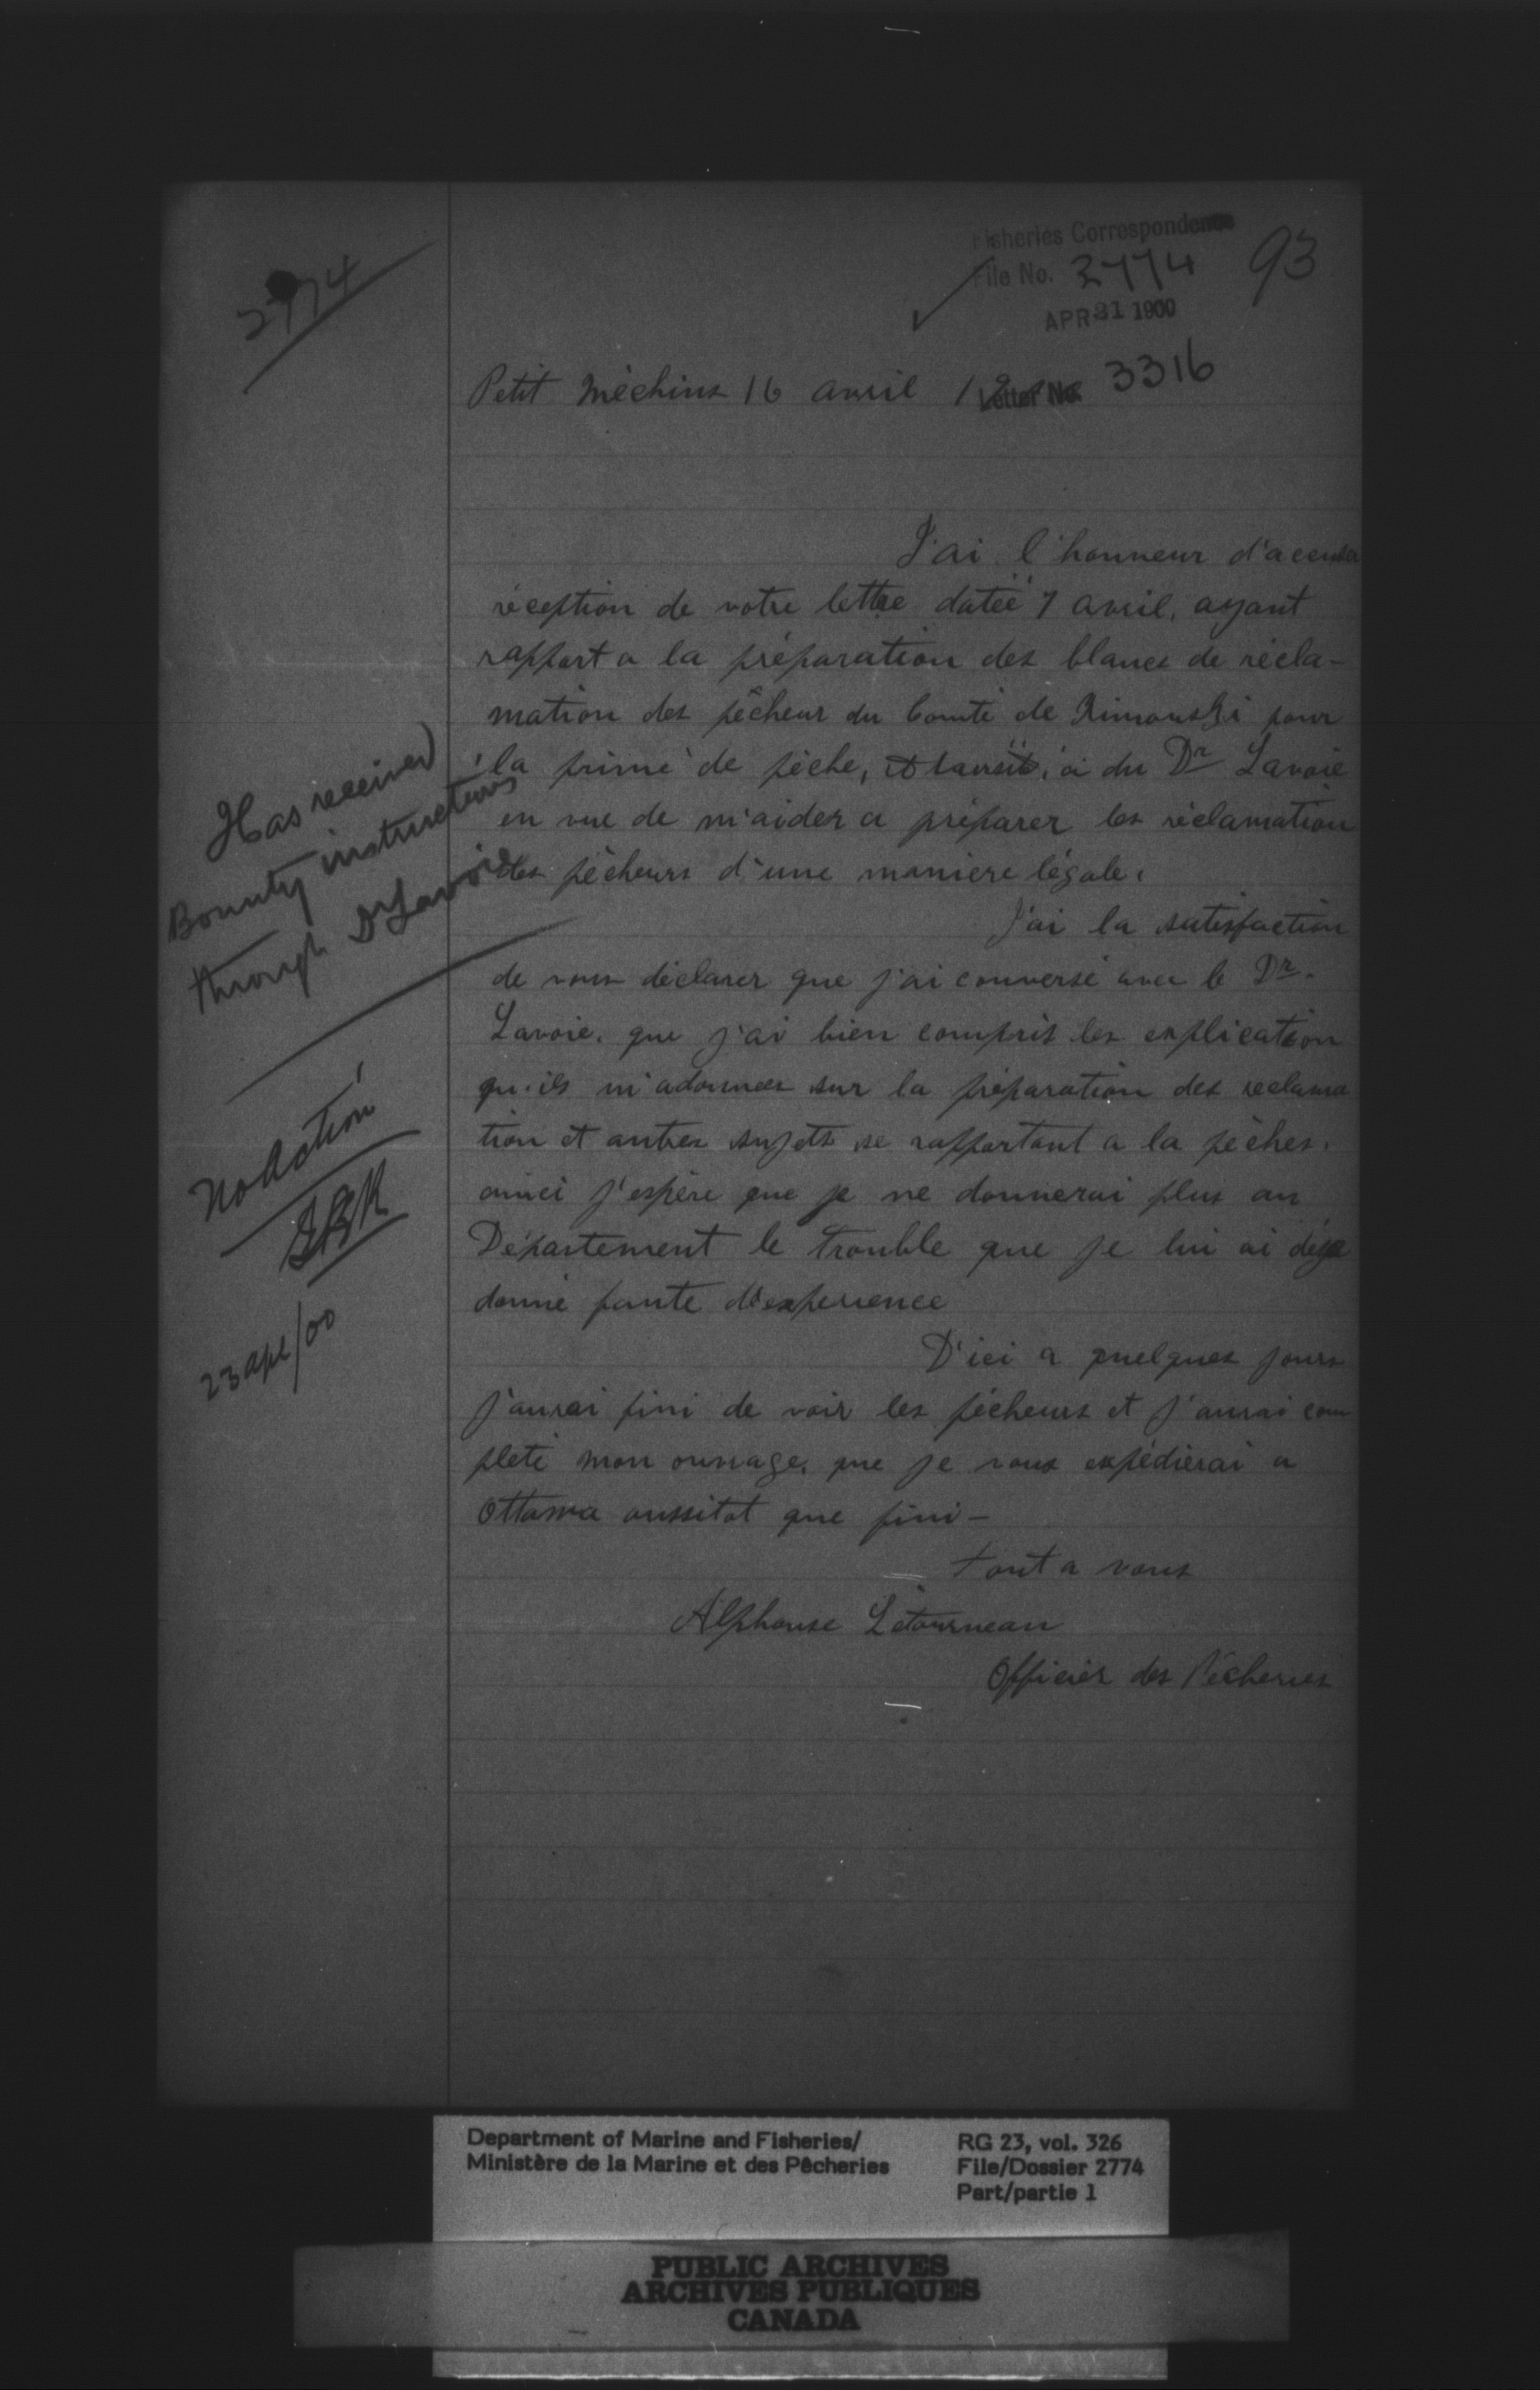 2774
Fisheries Correspondence
File No. 2774
93
APR 21 1900
Letter No. 3316
Petit Méchins 16 avril
J'ai l'honneur d'accuser
réception de votre lettre datée 7 avril, ayant
rapport a la préparation des blancs de récla-
mation des pêcheur du Comté de Rimouski pour
la prime de pêche, du Dr Lavoie
en vue de m'aider a préparer les réclamation
des pêcheurs d'une maniere légale.
J'ai la satisfaction
de vous déclarer que j'ai conversé avec le Dr.
Lavoie, que j'ai bien compris les explication
qu'ils m'adonnees sur la préparation des reclama
tion et autres sujets se rapportant a la pêches.
ainci j'espère que je ne donnerai plus au
Département le trouble que je lui ai déja
donné faute d'experience
D'ici a quelques jours
j'aurai fini de voir les pêcheurs et j'aurai com
pleté mon ouvrage, que je vous expédierai a
Ottawa aussitot que fini-
tout a vous
Alphonse Létourneau
Officier des Pêcheries
Has received
Bounty instructions
through Dr Lavoie
No Action
23 Apl/00
Department of Marine and Fisheries/
Ministère de la Marine et des Pêcheries
RG 23, vol. 326
File/Dossier 2774
Part/partie 1
PUBLIC ARCHIVES
ARCHIVES PUBLIQUES
CANADA